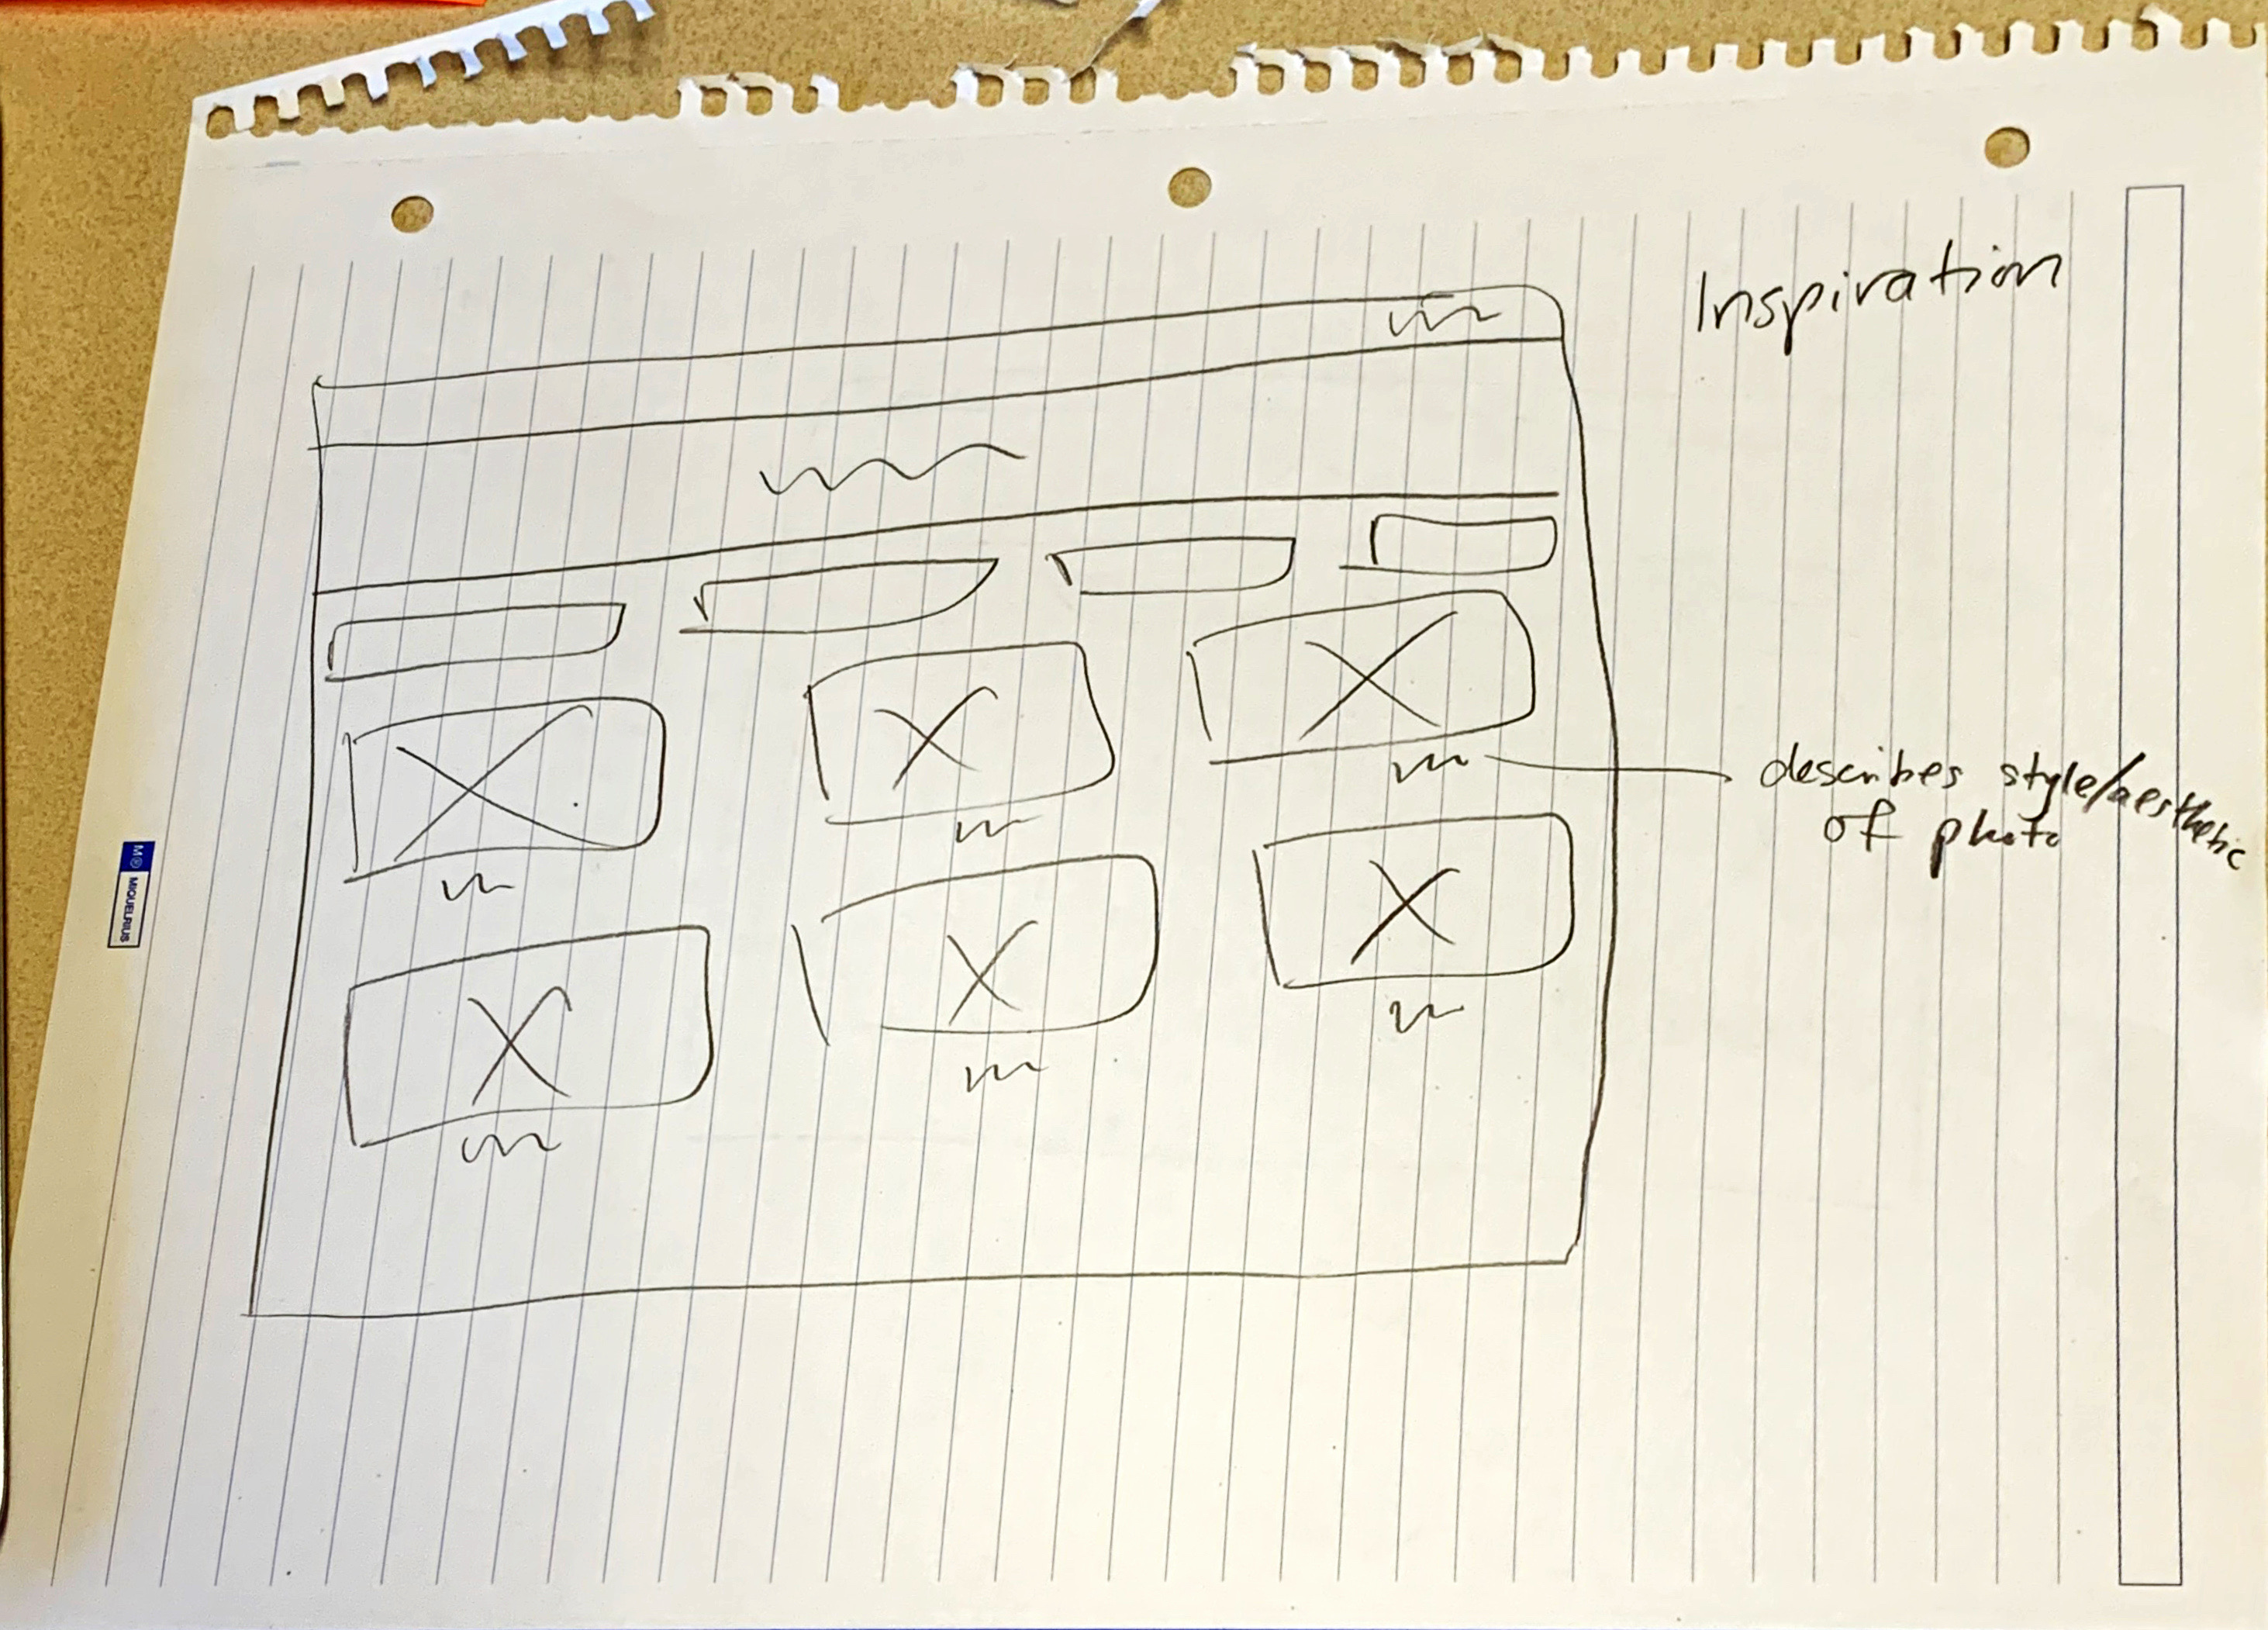 Inspiration
describes style/aesthetic
of photo
MIQUELRIUS